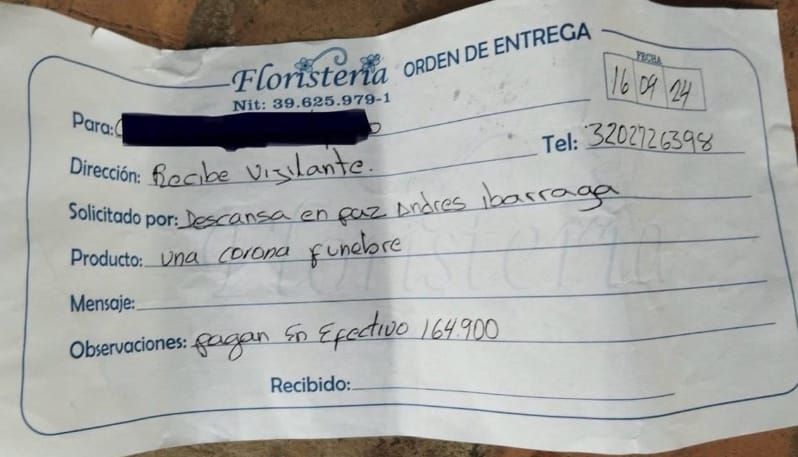 Floristería
Nit: 39.625.979-1
ORDEN DE ENTREGA
FECHA
16 09 24
Para:
Dirección: Recibe Vigilante.
Tel: 3202726398
Solicitado por: Descansa en paz Andres ibarraga
Producto: una corona funebre
Mensaje:
Observaciones: pagan En Efectivo 164.900
Recibido:
Floristería